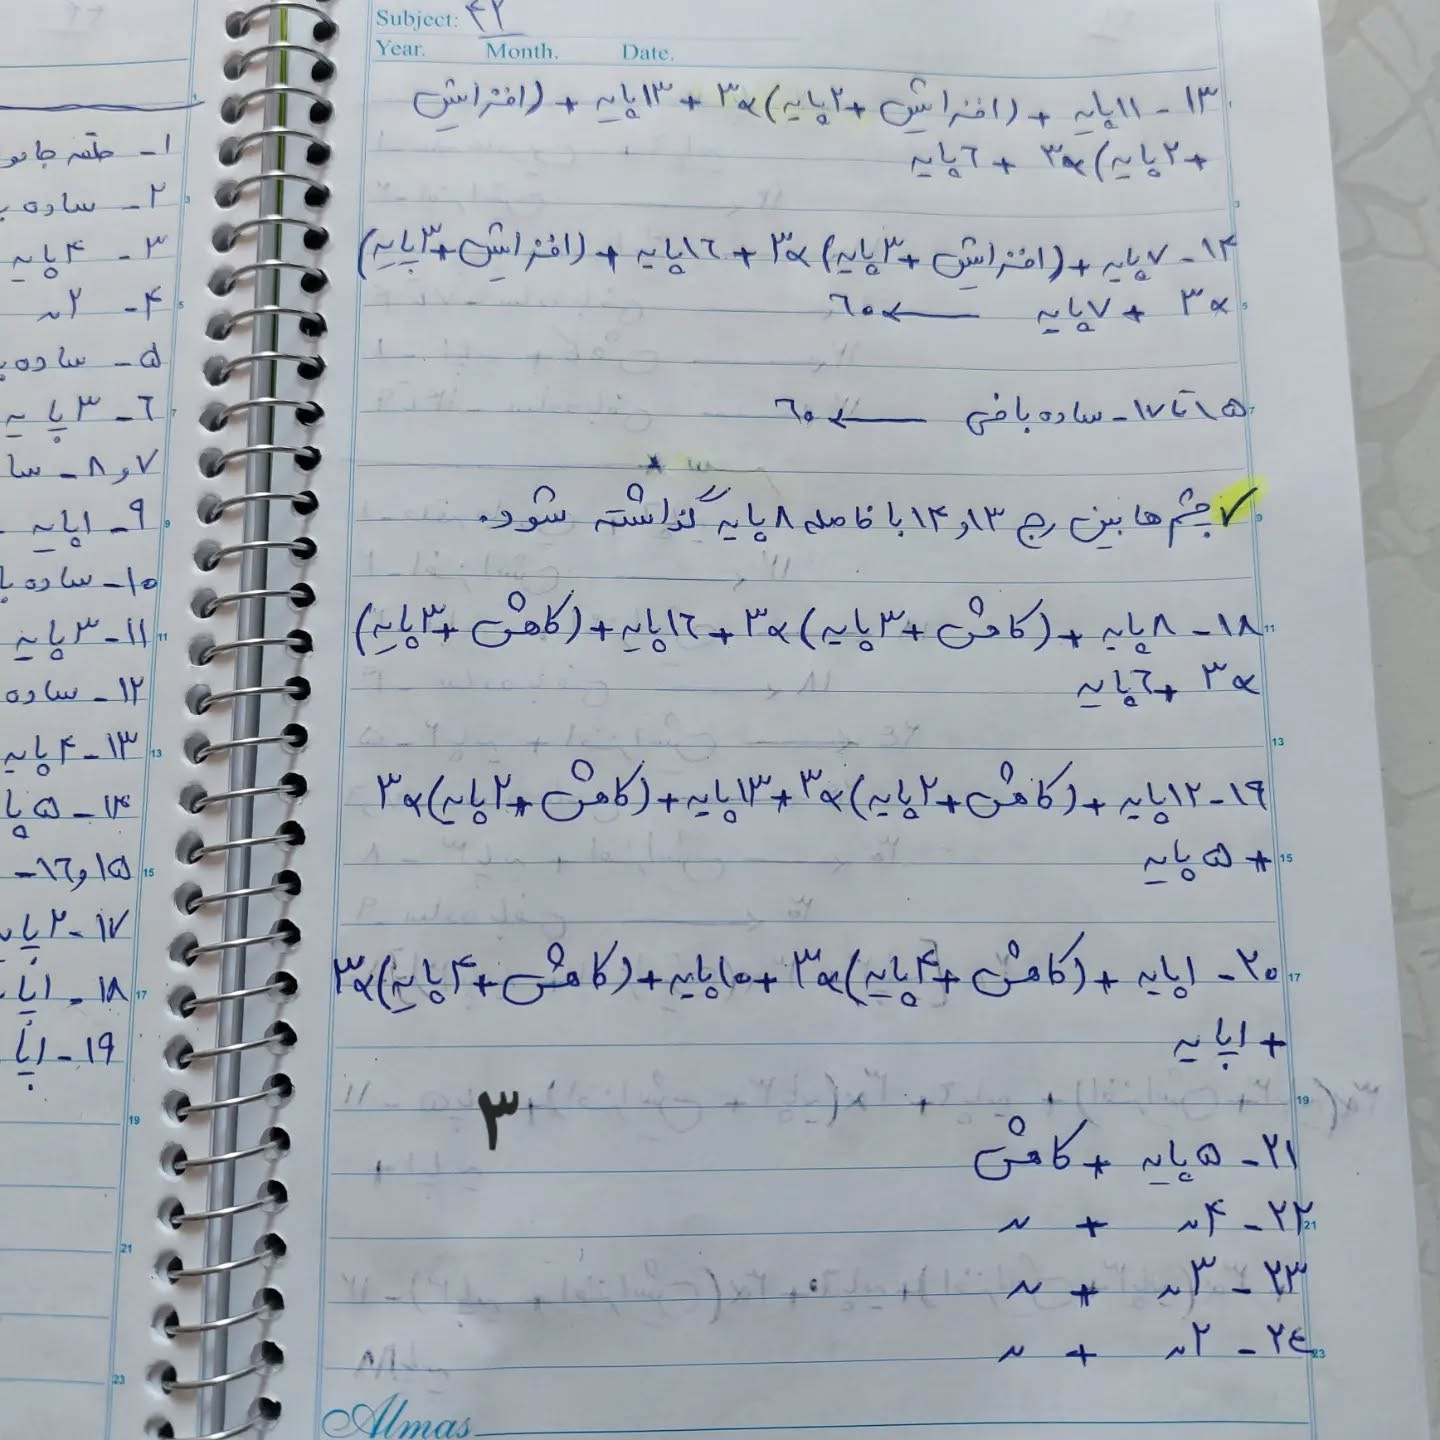 Subject: ۴۲
Year. Month. Date.
۱۳- ۱۱پایه + (افزایش +۲پایه)×۳ + ۱۳پایه + (افزایش
+۲پایه)×۳ + ۶پایه
۱۴- ۷پایه + (افزایش +۳پایه)×۳ + ۱۶پایه + (افزایش+۳پایه)
×۳ + ۷پایه ← ۶۰
۱۵تا۱۷- ساده بافی ← ۶۰
✓ چشم ها بین رج ۱۳و۱۴ با فاصله ۸پایه گذاشته شود.
۱۸- ۸پایه + (کاهش +۳پایه)×۳ + ۱۶پایه + (کاهش +۳پایه)
×۳ + ۶پایه
۱۹- ۱۲پایه + (کاهش +۲پایه)×۳ + ۱۳پایه + (کاهش +۲پایه)×۳
+ ۵پایه
۲۰- ۱پایه + (کاهش +۴پایه)×۳ + ۱۰پایه + (کاهش +۴پایه)×۳
+ ۱پایه
۲۱- ۵پایه + کاهش
۲۲- ۴ ~ + ~
۲۳- ۳ ~ + ~
۲۴- ۲ ~ + ~
۳
Almas
۱- حلقه
۲- ساده
۳- ۴پایه
۴- ۲ ~
۵- ساده
۶- ۳پایه
۷و۸- سا
۹- ۱پایه
۱۰- ساده با
۱۱- ۳پایه
۱۲- ساده
۱۳- ۴پایه
۱۴- ۵پا
۱۵و۱۶-
۱۷- ۲پایه
۱۸- ۱پا
۱۹- ۱پا